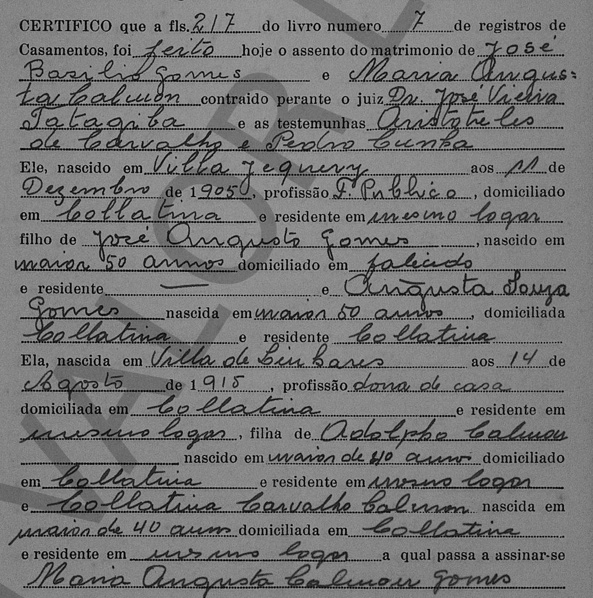 CERTIFICO que a fls. 217 do livro numero 7 de registros de
Casamentos, foi feito hoje o assento do matrimonio de José
Basilio Gomes e Maria Augus=
ta Calmon contraido perante o juiz Dr. José Vieira
Tatagiba e as testemunhas Aristoteles
de Carvalho e Pedro Cunha
Ele, nascido em Villa Jequery aos 11 de
Dezembro de 1905, profissão F. Publico, domiciliado
em Collatina e residente em mesmo logar
filho de José Augusto Gomes, nascido em
maior 50 annos domiciliado em falecido
e residente — e Augusta Souza
Gomes nascida em maior 50 annos, domiciliada
Collatina e residente Collatina
Ela, nascida em Villa de Linhares aos 14 de
Agosto de 1915, profissão dona de casa
domiciliada em Collatina e residente em
mesmo logar, filha de Adolpho Calmon
nascido em maior de 40 annos domiciliado
em Collatina e residente em mesmo logar
e Collatina Carvalho Calmon nascida em
maior de 40 annos domiciliada em Collatina
e residente em mesmo logar a qual passa a assinar-se
Maria Augusta Calmon Gomes
VALOR